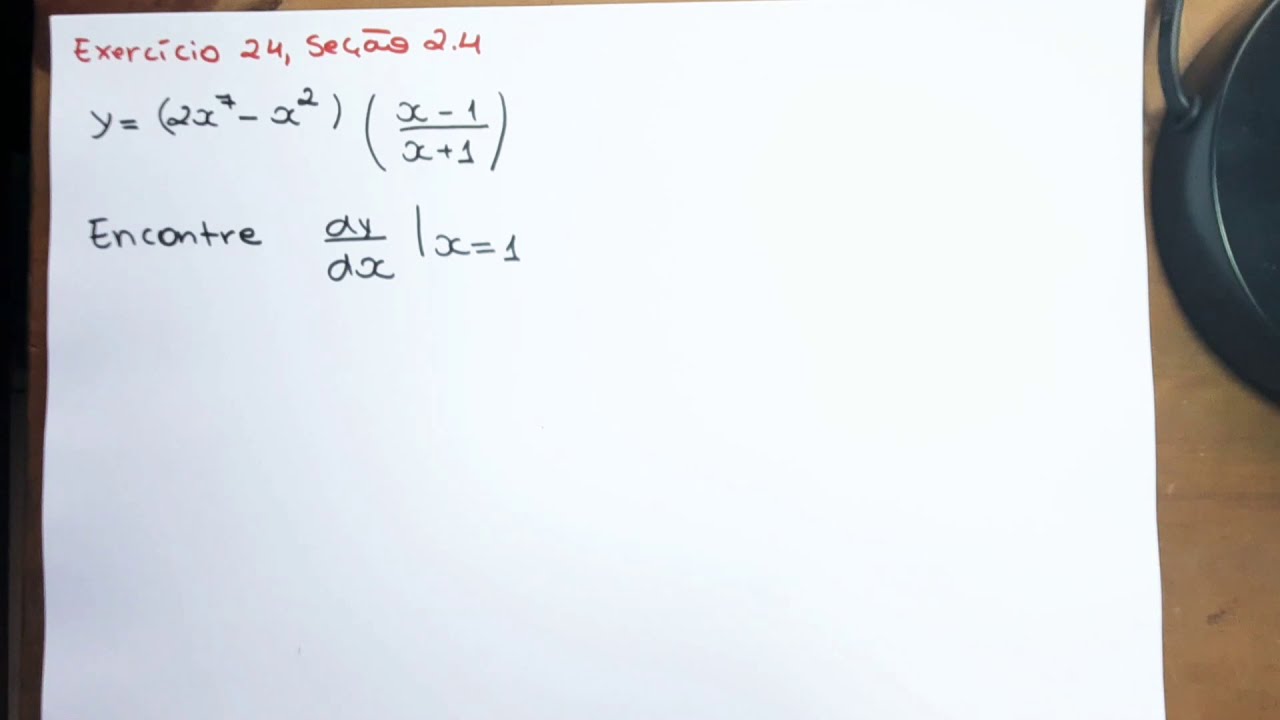 Exercício 24, Seção 2.4
y = (2x⁷ - x²) ( (x - 1)/(x + 1) )
Encontre dy/dx |x=1